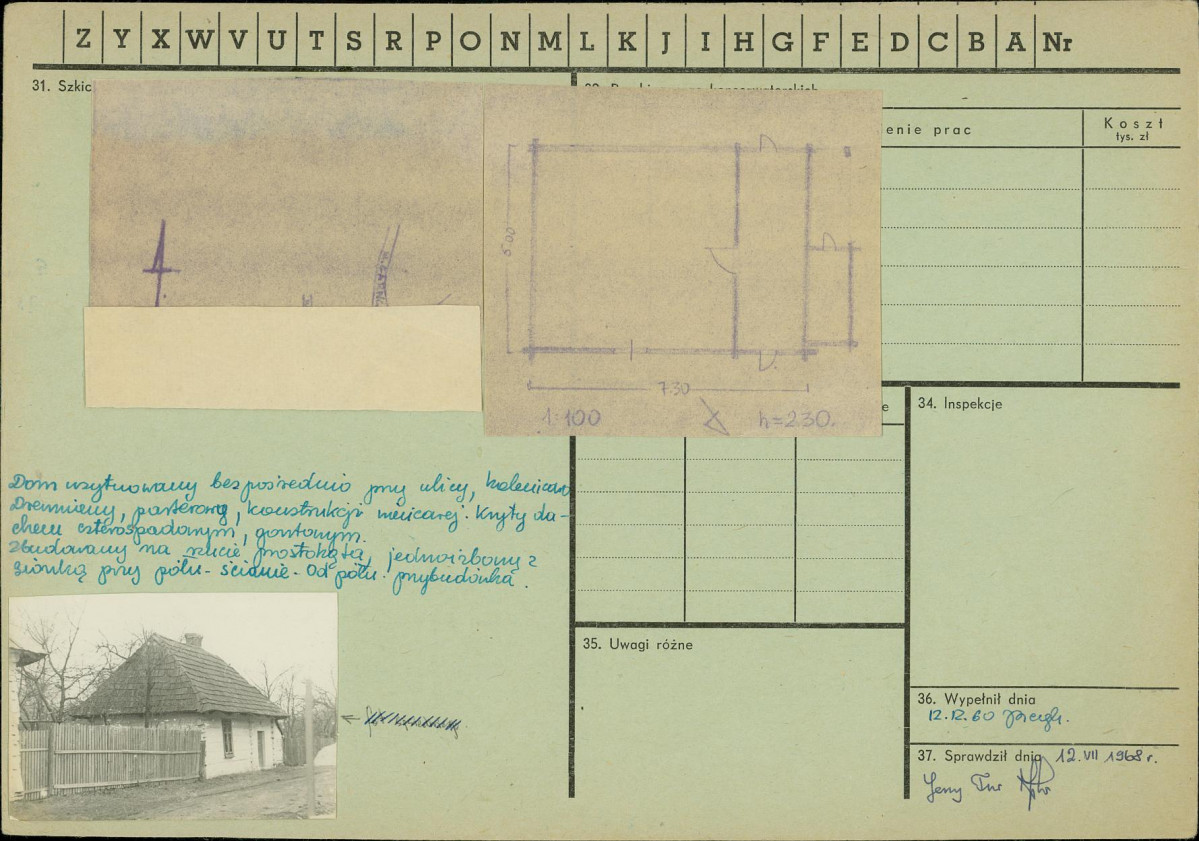 Z Y X W V U T S R P O N M L K J I H G F E D C B A Nr
31. Szkic
enie prac
Koszt
tys. zł
5.00
7.30
1:100
h=2.30.
e
34. Inspekcje
Dom usytuowany bezpośrednio przy ulicy,
Drewniany, parterowy, konstrukcji Kryty da-
chem czterospadowym, gontowym.
Zbudowany na rzucie prostokąta, jednoizbowy z
sionką przy półn. ścianie. Od półn. przybudówka.
35. Uwagi różne
36. Wypełnił dnia
12.12.60
37. Sprawdził dnia 12.VII 1968 r.